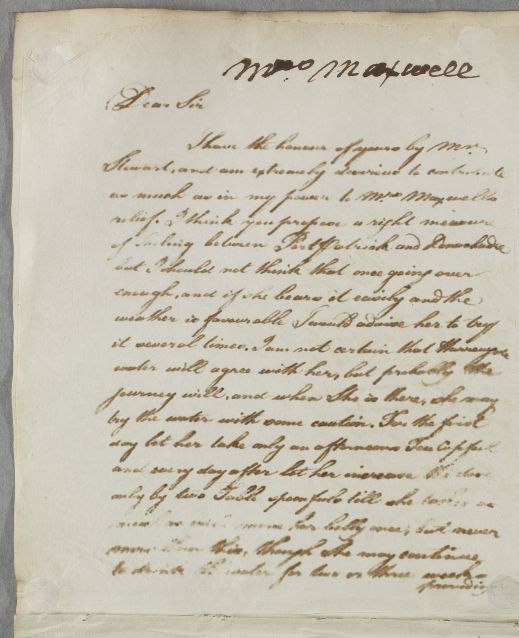 Mrs Maxwell
Dear Sir
I have the honour of yours by Mr.
Stewart, and am extremely desirous to contribute
as much as in my power to Mrs. Maxwells
relief. I think you propose a right measure
of sailing between Portpatrick and Donachadie
but I should not think that once going over
enough, and if she bears it easily and the
weather is favourable I would advise her to try
it several times. I am not certain that
water will agree with her, but probably the
journey will, and when She is there, she may
try the water with some caution. For the first
day let her take only an afternoons Tea Cupful
and every day after let her increase the dose
only by two Table spoonfuls till she takes as
much as will move her belly once, but never
more than this, though she may continue
to drink the water for two or three weeks
providing